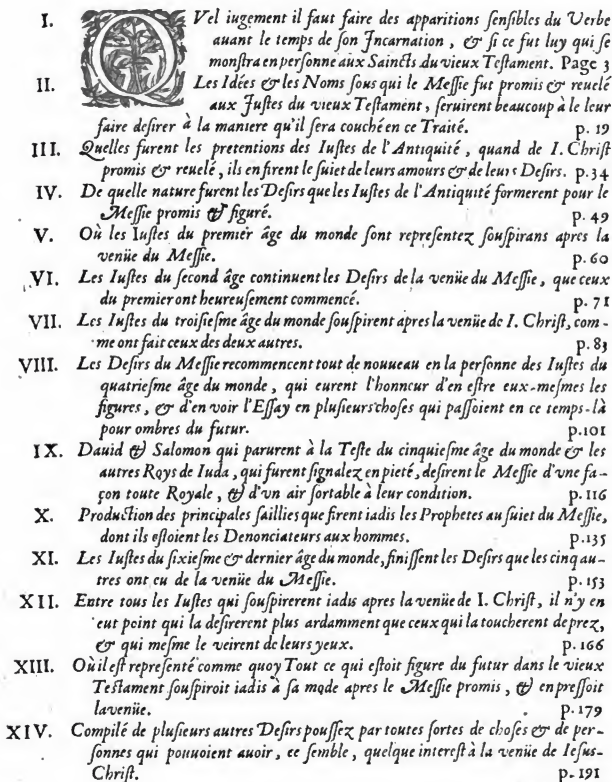 I. QVel iugement il faut faire des apparitions ſenſibles du Verbe
auant le temps de ſon Incarnation, & ſi ce fut luy qui ſe
monſtra en perſonne aux Saincts du vieux Teſtament. Page 3
II. Les Idées & les Noms ſous qui le Meſſie fut promis & reuelé
aux Juſtes du vieux Teſtament, ſeruirent beaucoup à le leur
faire deſirer à la maniere qu'il ſera couché en ce Traité. p. 19
III. Quelles furent les pretentions des Iuſtes de l'Antiquité, quand de I. Chriſt
promis & reuelé, ils en firent le ſuiet de leurs amours & de leurs Deſirs. p. 34
IV. De quelle nature furent les Deſirs que les Iuſtes de l'Antiquité formerent pour le
Meſſie promis & figuré. p. 49
V. Où les Iuſtes du premier âge du monde ſont repreſentez ſouſpirans apres la
venüe du Meſſie. p. 60
VI. Les Iuſtes du ſecond âge continuent les Deſirs de la venüe du Meſſie, que ceux
du premier ont heureuſement commencé. p. 71
VII. Les Iuſtes du troiſieſme âge du monde ſouſpirent apres la venüe de I. Chriſt, com-
me ont fait ceux des deux autres. p. 83
VIII. Les Deſirs du Meſſie recommencent tout de nouueau en la perſonne des Iuſtes du
quatrieſme âge du monde, qui eurent l'honneur d'en eſtre eux-meſmes les
figures, & d'en voir l'Eſſay en pluſieurs choſes qui paſſoient en ce temps-là
pour ombres du futur. p. 101
IX. Dauid & Salomon qui parurent à la Teſte du cinquieſme âge du monde & les
autres Roys de Iuda, qui furent ſignalez en pieté, deſirent le Meſſie d'vne fa-
çon toute Royale, & d'vn air ſortable à leur condition. p. 116
X. Production des principales ſaillies que firent iadis les Prophetes au ſuiet du Meſſie,
dont ils eſtoient les Denonciateurs aux hommes. p. 135
XI. Les Iuſtes du ſixieſme & dernier âge du monde, finiſſent les Deſirs que les cinq au-
tres ont eu de la venüe du Meſſie. p. 153
XII. Entre tous les Iuſtes qui ſouſpirerent iadis apres la venüe de I. Chriſt, il n'y en
eut point qui la deſirerent plus ardamment que ceux qui la toucherent de prez,
& qui meſme le veirent de leurs yeux. p. 166
XIII. Où il eſt repreſenté comme quoy Tout ce qui eſtoit figure du futur dans le vieux
Teſtament ſouſpiroit iadis à ſa mode apres le Meſſie promis, & en preſſoit
la venüe. p. 179
XIV. Compilé de pluſieurs autres Deſirs pouſſez par toutes ſortes de choſes & de per-
ſonnes qui pouuoient auoir, ce ſemble, quelque intereſt à la venüe de Ieſus-
Chriſt. p. 191